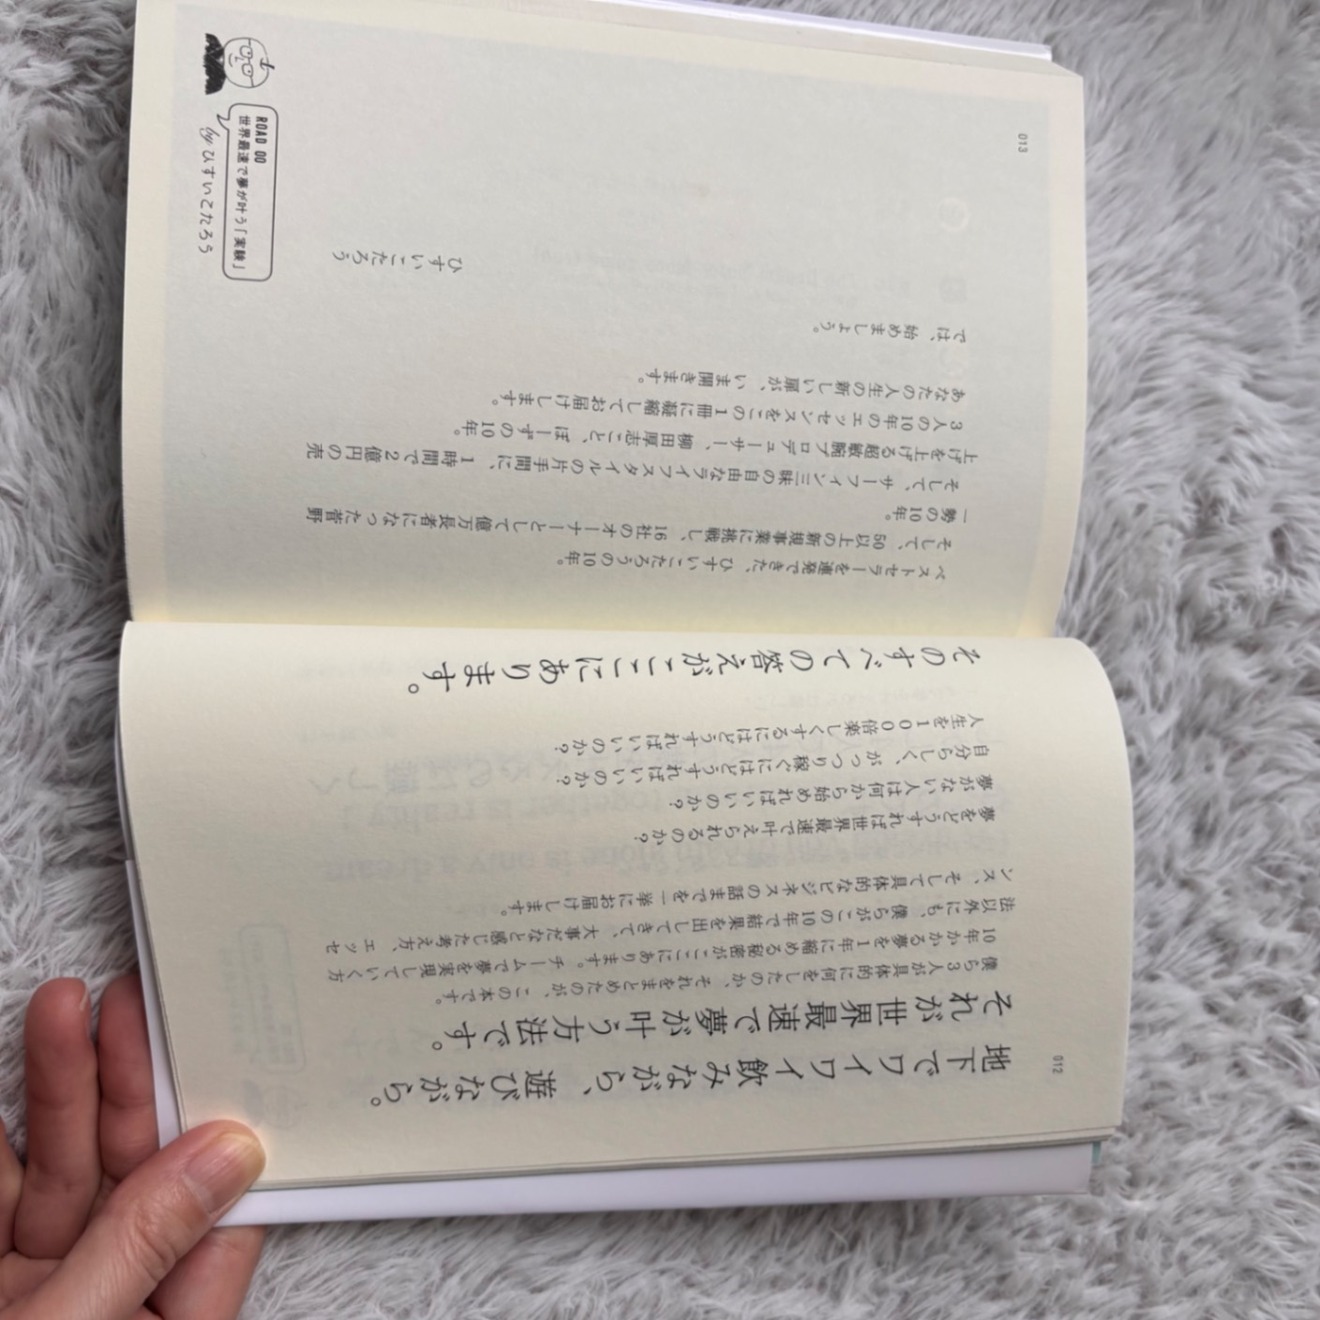 012
地下でワイワイ飲みながら、遊びながら。
それが世界最速で夢が叶う方法です。
僕ら3人が具体的に何をしたのか、それをまとめたのが、この本です。
10年かかる夢を1年に縮める秘密がここにあります。チームで夢を実現していく方
法以外にも、僕らがこの10年で結果を出してきて、大事だなと感じた考え方、エッセ
ンス、そして具体的なビジネスの話までを一挙にお届けします。
夢をどうすれば世界最速で叶えられるのか?
夢がない人は何から始めればいいのか?
自分らしく、がっつり稼ぐにはどうすればいいのか?
人生を100倍楽しくするにはどうすればいいのか?
そのすべての答えがここにあります。
ベストセラーを連発できた、ひすいこたろうの10年。
そして、50以上の新規事業に挑戦し、16社のオーナーとして億万長者になった菅野
一勢の10年。
そして、サーフィン三昧の自由なライフスタイルの片手間に、1時間で2億円の売
上げを上げる超敏腕プロデューサー、柳田厚志こと、ぼーずの10年。
3人の10年のエッセンスをこの1冊に凝縮してお届けします。
あなたの人生の新しい扉が、いま開きます。
では、始めましょう。
ひすいこたろう
013
ROAD 00
世界最速で夢が叶う「実験」
by ひすいこたろう